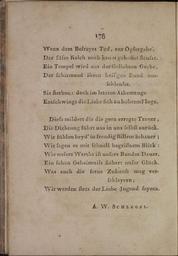 178
Wenn dem Befreyer Tod, zur Opfergabe,
Der süsse Kelch noch kaum gekostet
Ein Tempel wird aus der
Der schirmend ihren heil'gen Bund
Sie sterben; doch im letzten Athemzuge
Entschwingt die Liebe sich zu höherem Fluge.
Dieß mildert dir die gern erregte Trauer,
Die Dichtung führt uns in uns selbst zurück.
Wir fühlen beyd' in freudig stillem Schauer,
Wir sagen es mit schnell begriffnem Blick:
Wie unsers Werths ist unsers Bundes Dauer,
Ein schön Geheimniß sichert unser Glück.
Was auch die ferne Zukunft mag ver-
schleyern,
Wir werden stets der Liebe Jugend feyern.
A. W. SCHLEGEL.